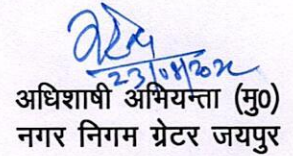 23/08/202
अधिशाषी अभियन्ता (मु0)
नगर निगम ग्रेटर जयपुर